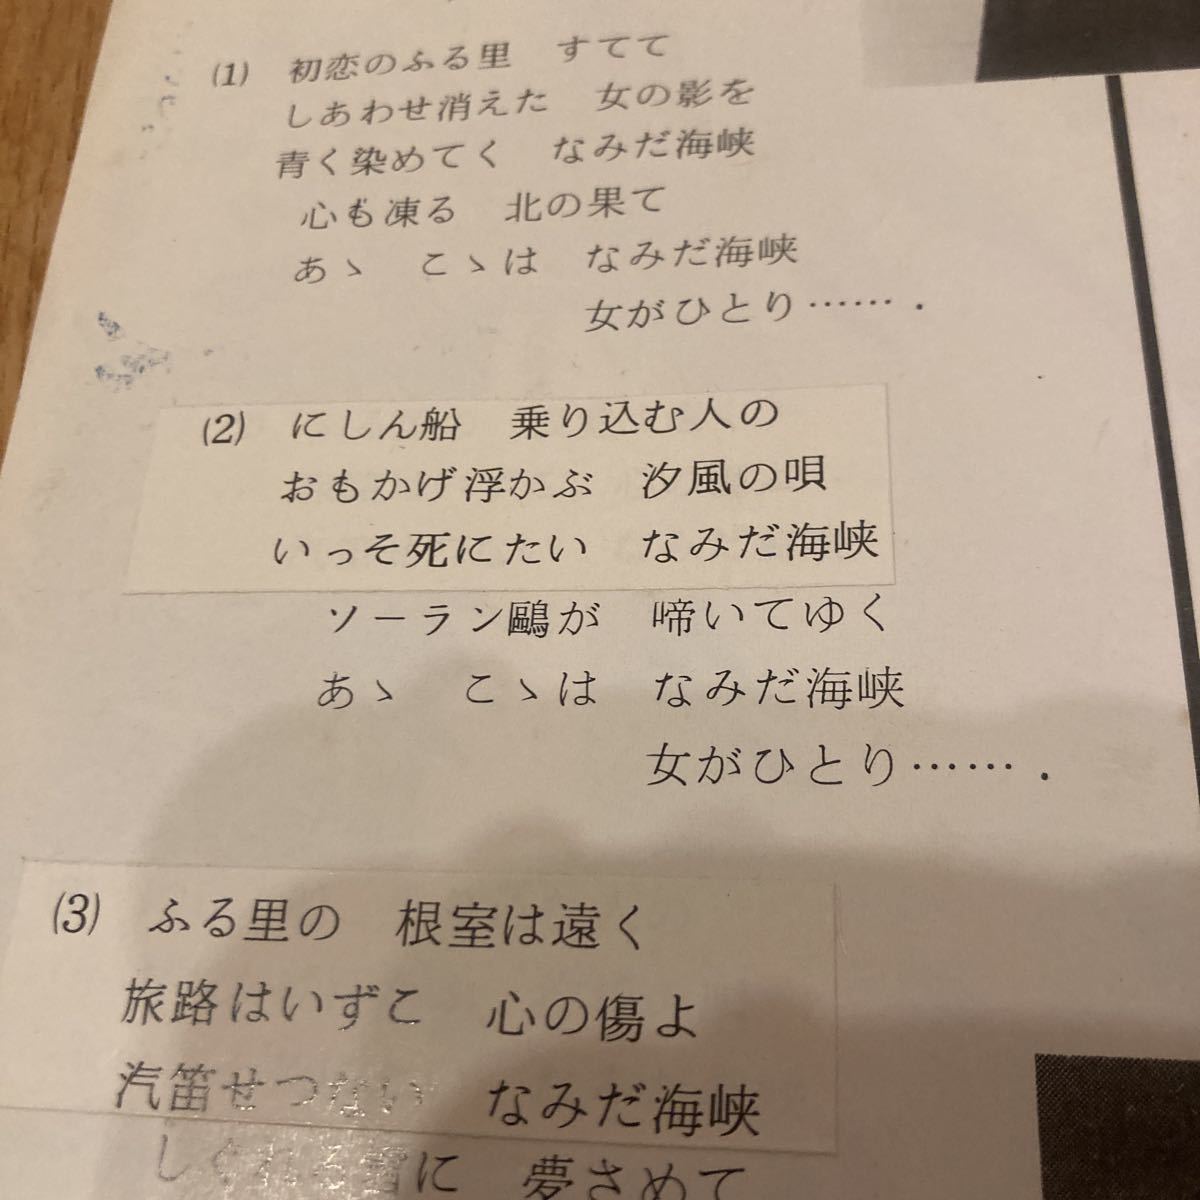 (1) 初恋のふる里 すてて
しあわせ消えた 女の影を
青く染めてく なみだ海峡
心も凍る 北の果て
あゝ こゝは なみだ海峡
女がひとり…….
(2) にしん船 乗り込む人の
おもかげ浮かぶ 汐風の唄
いっそ死にたい なみだ海峡
ソーラン鷗が 啼いてゆく
あゝ こゝは なみだ海峡
女がひとり…….
(3) ふる里の 根室は遠く
旅路はいずこ 心の傷よ
汽笛せつない なみだ海峡
に 夢さめて